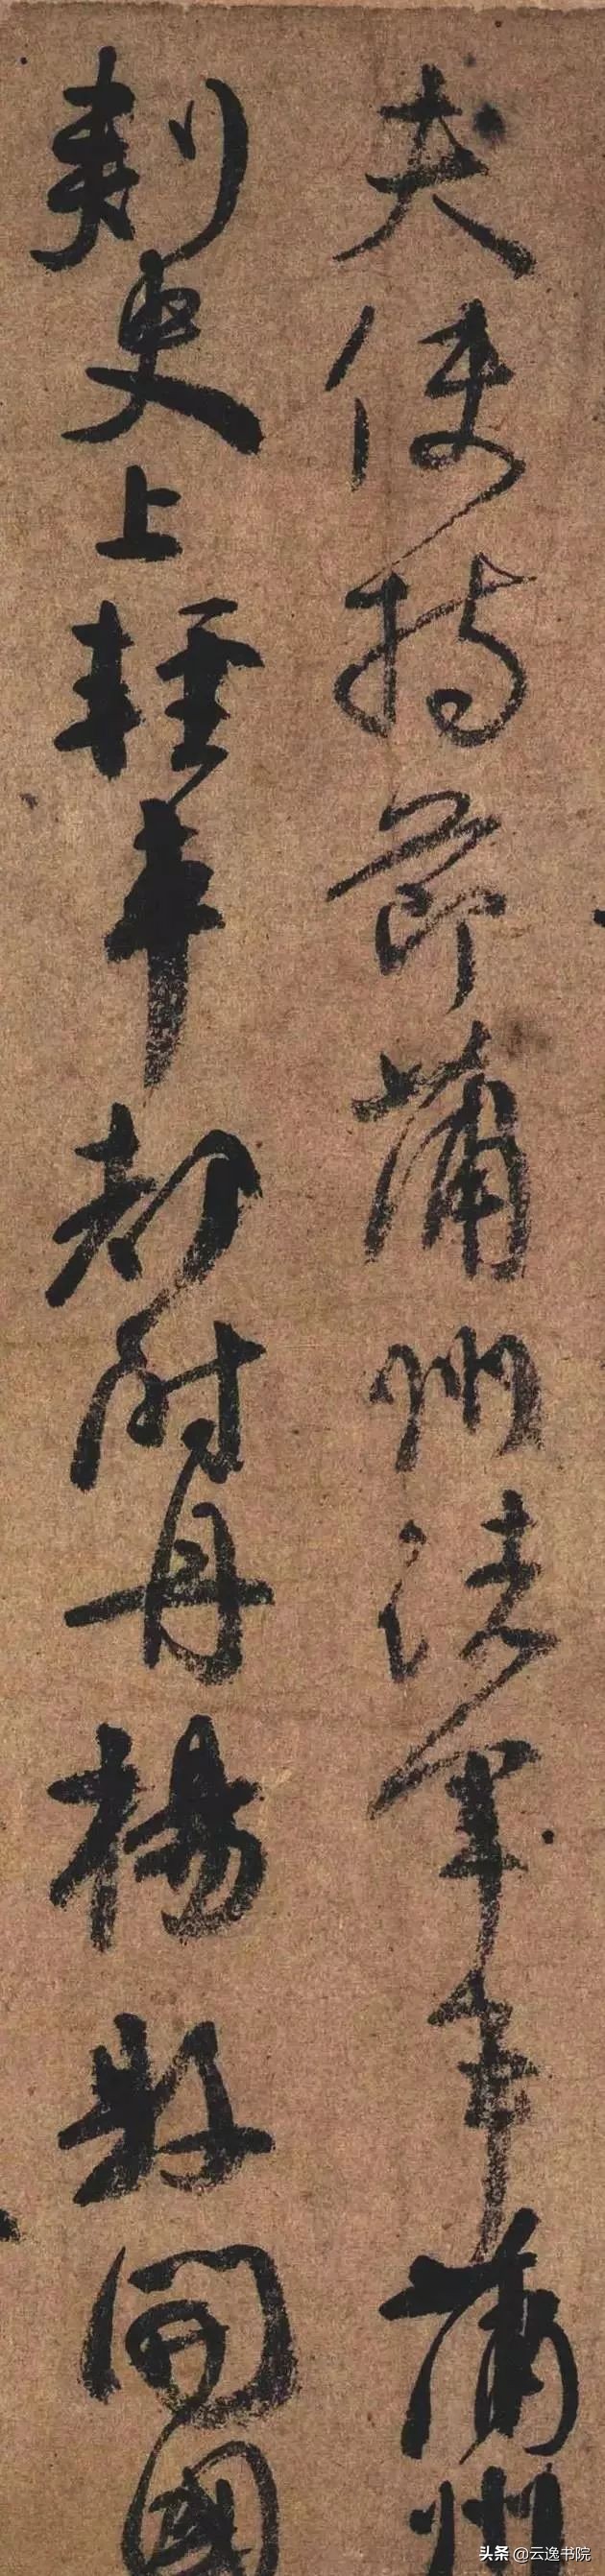 夫使持節蒲州諸軍事蒲州
刺史上輕車都尉丹楊縣開國
头条 @云逸书院